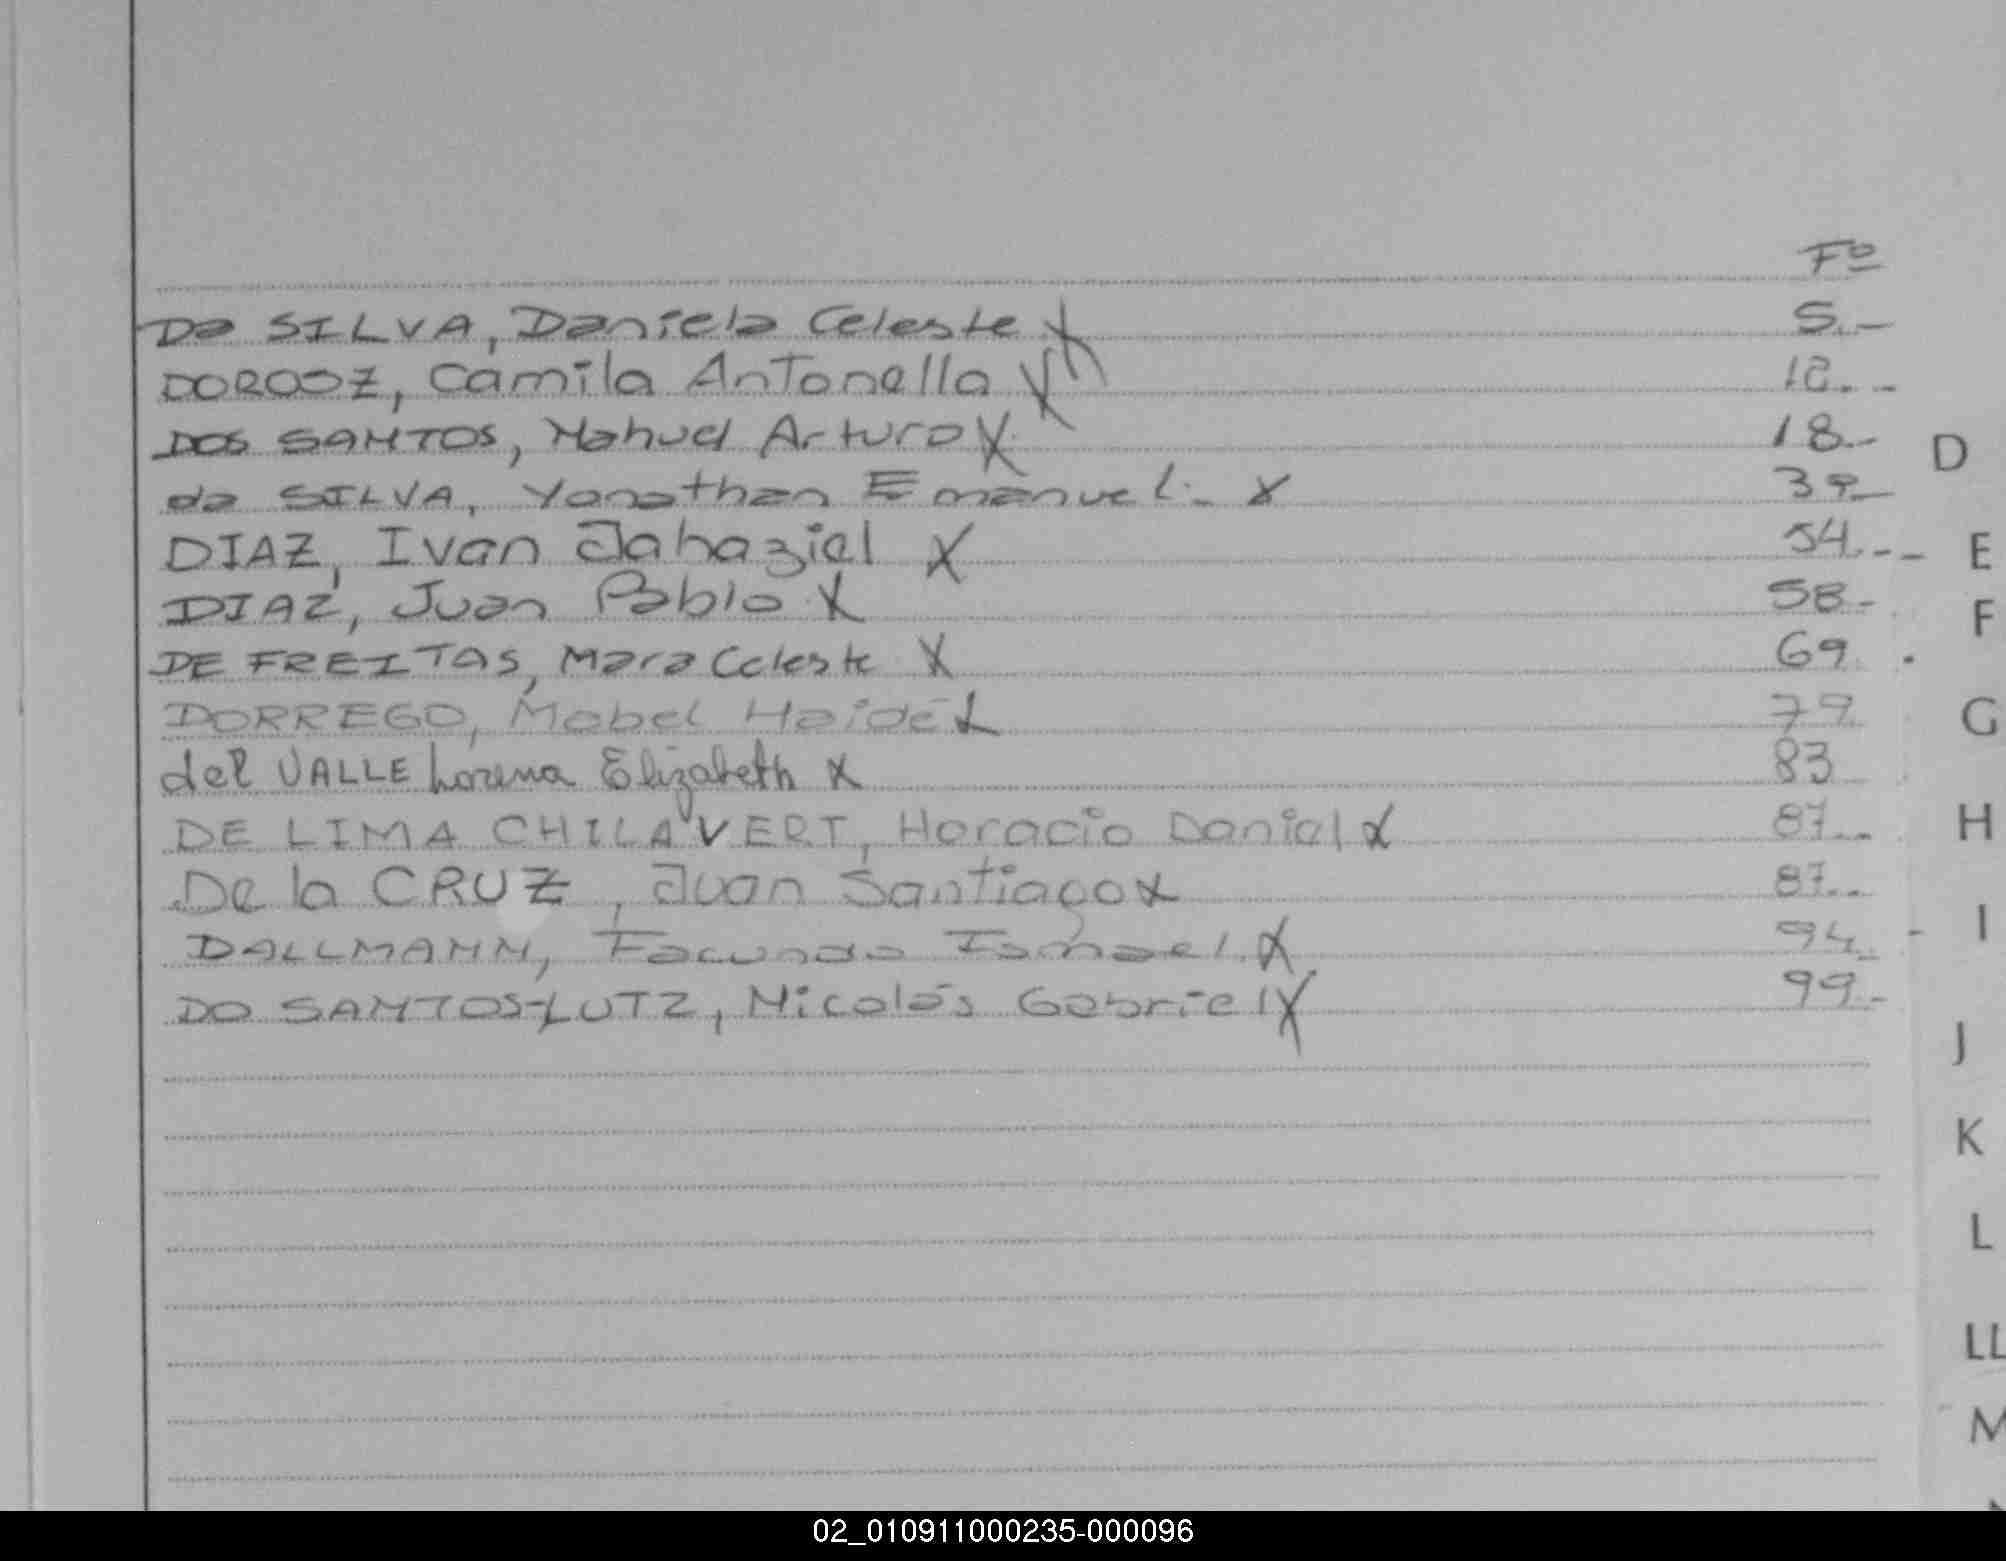 Fº
Da SILVA, Daniela Celeste X 5.-
DOROSZ, Camila Antonella X 18.-
DOS SANTOS, Nahuel Arturo X 18.-
da SILVA, Yonathan Emanuel.- X 39-
DIAZ, Ivan Jahaziel X 54.--
DIAZ, Juan Pablo X 58-
DE FREITAS, Mara Celeste X 69.
DORREGO, Mabel Haidé X 79
del VALLE Lorena Elizabeth X 83
DE LIMA CHILAVERT, Horacio Daniel X 87..
De la CRUZ, Juan Santiago X 87..
DALLMANN, Facundo Ismael. X 94.
DO SANTOS-LUTZ, Nicolás Gabriel X 99-
D
E
F
G
H
I
J
K
L
LL
M
02_010911000235-000096